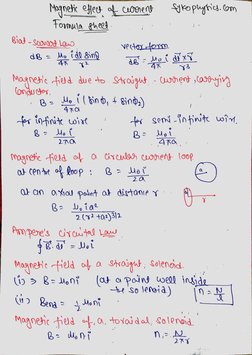 Magnetic effect of current
Formula sheet
Biot-Savart Law
vector form
dB = μ₀/4π i dl sinθ/r²
dB = μ₀ i/4π dl×r/r³
Magnetic field due to straight current carrying
Conductor.
B = μ₀i/4πa (sinϕ₁ + sinϕ₂)
for infinite wire
for semi-infinite wire.
B = μ₀i/2πa
B = μ₀i/4πa
Magnetic field of a circular current loop
at centre of loop : B = μ₀i/2a
at an axial point at distance r
B = μ₀ia²/2(r²+a²)3/2
Ampere's Circuital Law
∮B.dr = μ₀i
Magnetic field of a straight solenoid.
(i) B = μ₀ni (at a point well inside
the solenoid)
n = N/l
(ii) Bend = 1/2 μ₀ni
Magnetic field of a toroidal solenoid
B = μ₀ni
n = N/2πr